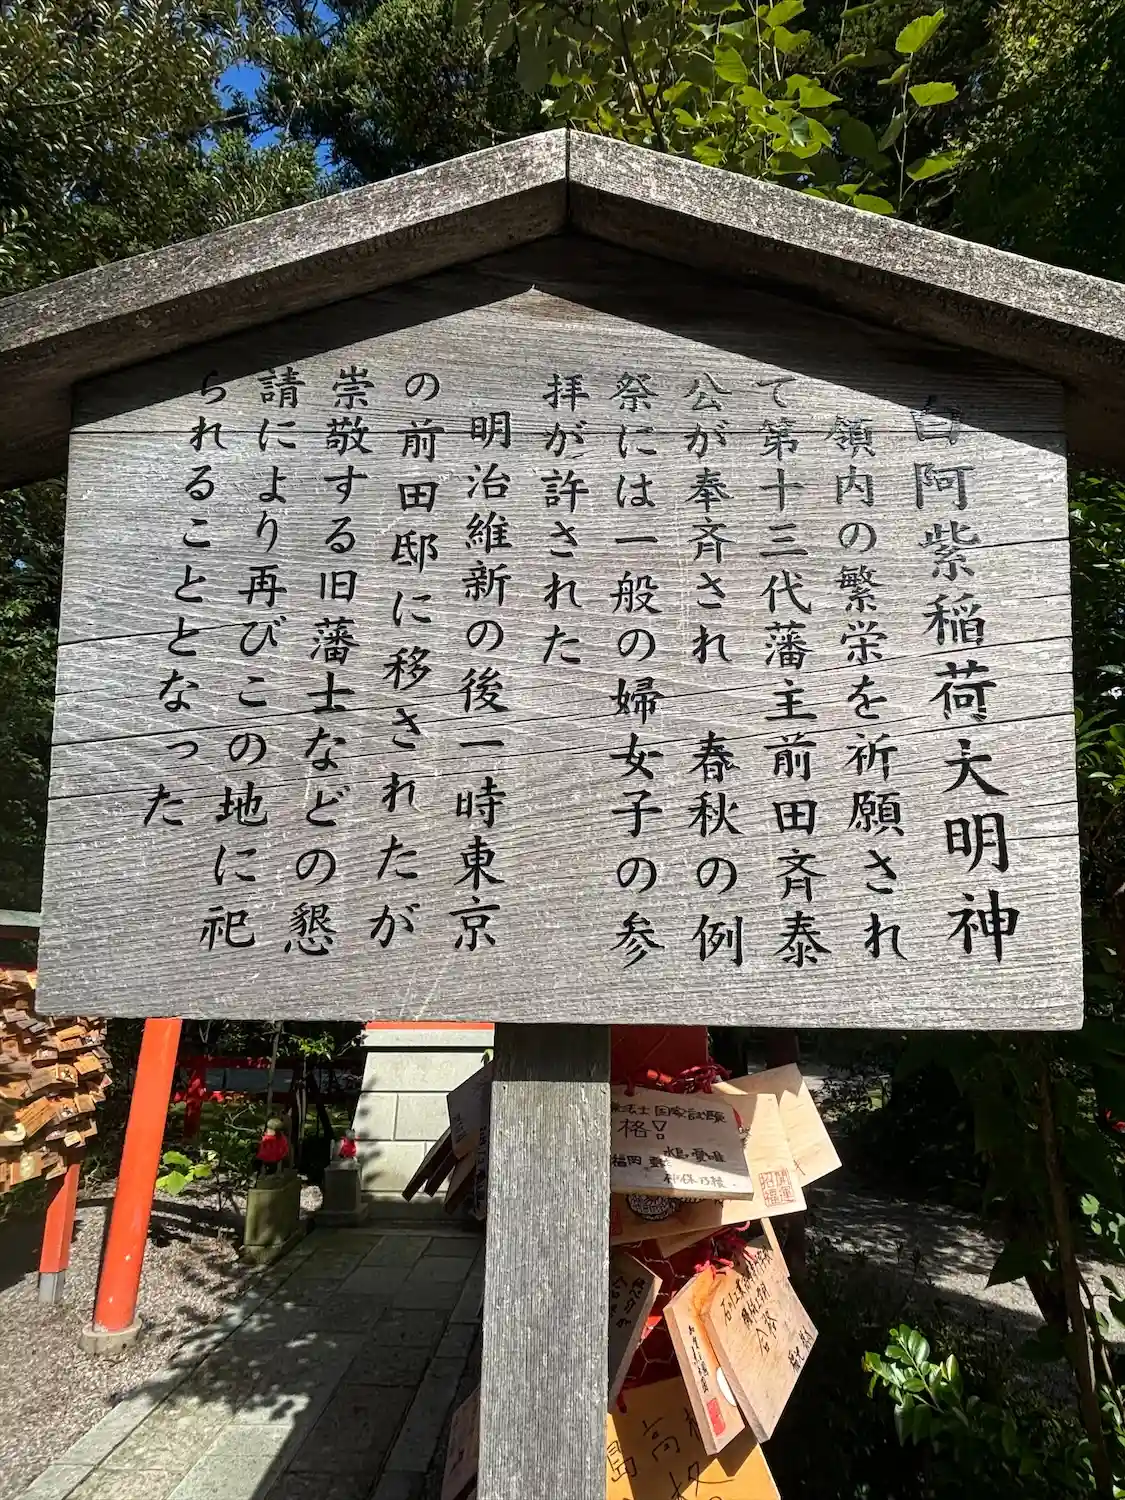 白阿紫稲荷大明神
領内の繁栄を祈願され
て第十三代藩主前田斉泰
公が奉斉され 春秋の例
祭には一般の婦女子の参
拝が許された
明治維新の後一時東京
の前田邸に移されたが
崇敬する旧藩士などの懇
請により再びこの地に祀
られることとなった
国家試験
格!
福岡